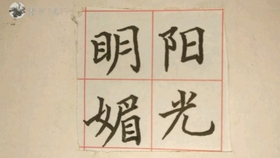 明阳
媚光